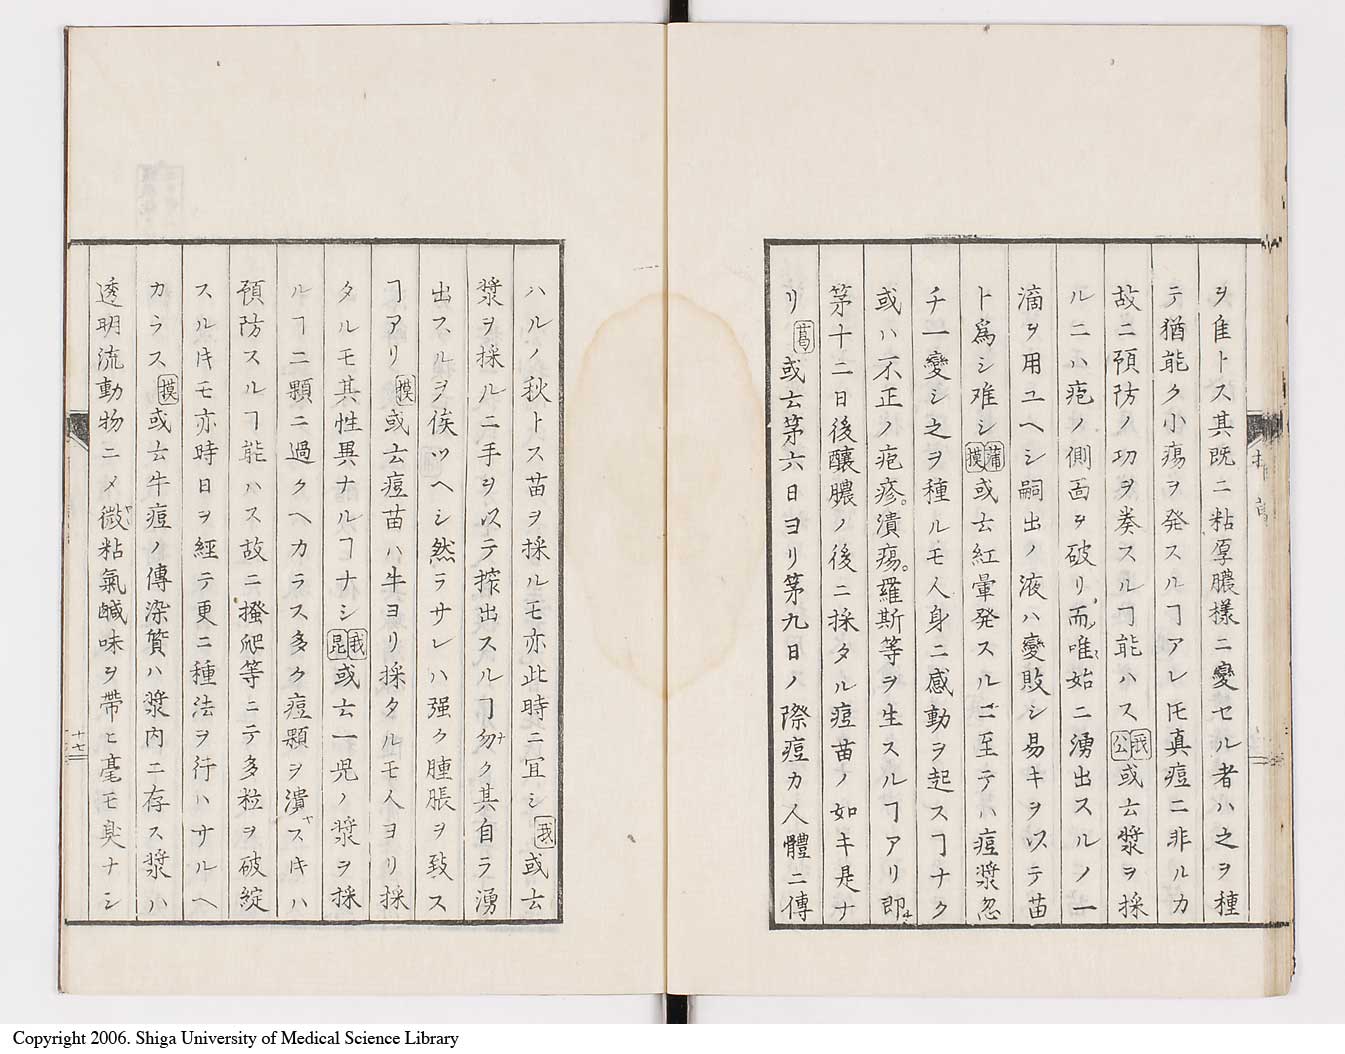 ヲ隹トス其既ニ粘厚膿様ニ變セル者ハ之ヲ種
テ猶能ク小瘍ヲ発スルヿアレ𪜈真痘ニ非ルカ
故ニ預防ノ功ヲ奏スルヿ能ハス我公或云漿ヲ採
ルニハ疱ノ側面ヲ破リ而唯始ニ湧出スルノ一
滴ヲ用ユヘシ嗣出ノ液ハ變敗シ易キヲ以テ苗
ト爲シ难シ蒲摸或云紅暈発スルニ至テハ痘漿忽
チ一變シ之ヲ種ルモ人身ニ感動ヲ起スヿナク
或ハ不正ノ疱疹。潰瘍。羅斯等ヲ生スルヿアリ即
第十二日後釀膿ノ後ニ採タル痘苗ノ如キ是ナ
リ葛或云第六日ヨリ第九日ノ際痘カ人體ニ傳
ハルノ秋トス苗ヲ採ルモ亦此時ニ宜シ我或云
漿ヲ採ルニ手ヲ以テ搾出スルヿ勿ナク其自ラ湧
出スルヲ俟ツヘシ然ラサレハ强ク腫脹ヲ致ス
ヿアリ摸或云痘苗ハ牛ヨリ採タルモ人ヨリ採
タルモ其性異ナルヿナシ我昆或云一児ノ漿ヲ採
ルヿ二顆ニ過クヘカラス多ク痘顆ヲ潰ヤスキハ
預防スルヿ能ハス故ニ搔爬等ニテ多粒ヲ破綻
スルキモ亦時日ヲ經テ更ニ種法ヲ行ハサルヘ
カラス摸或云牛痘ノ傳染質ハ漿内ニ存ス漿ハ
透明流動物ニメ微粘氣鹹味ヲ帶ヒ毫モ臭ナシ
十七
Copyright 2006. Shiga University of Medical Science Library